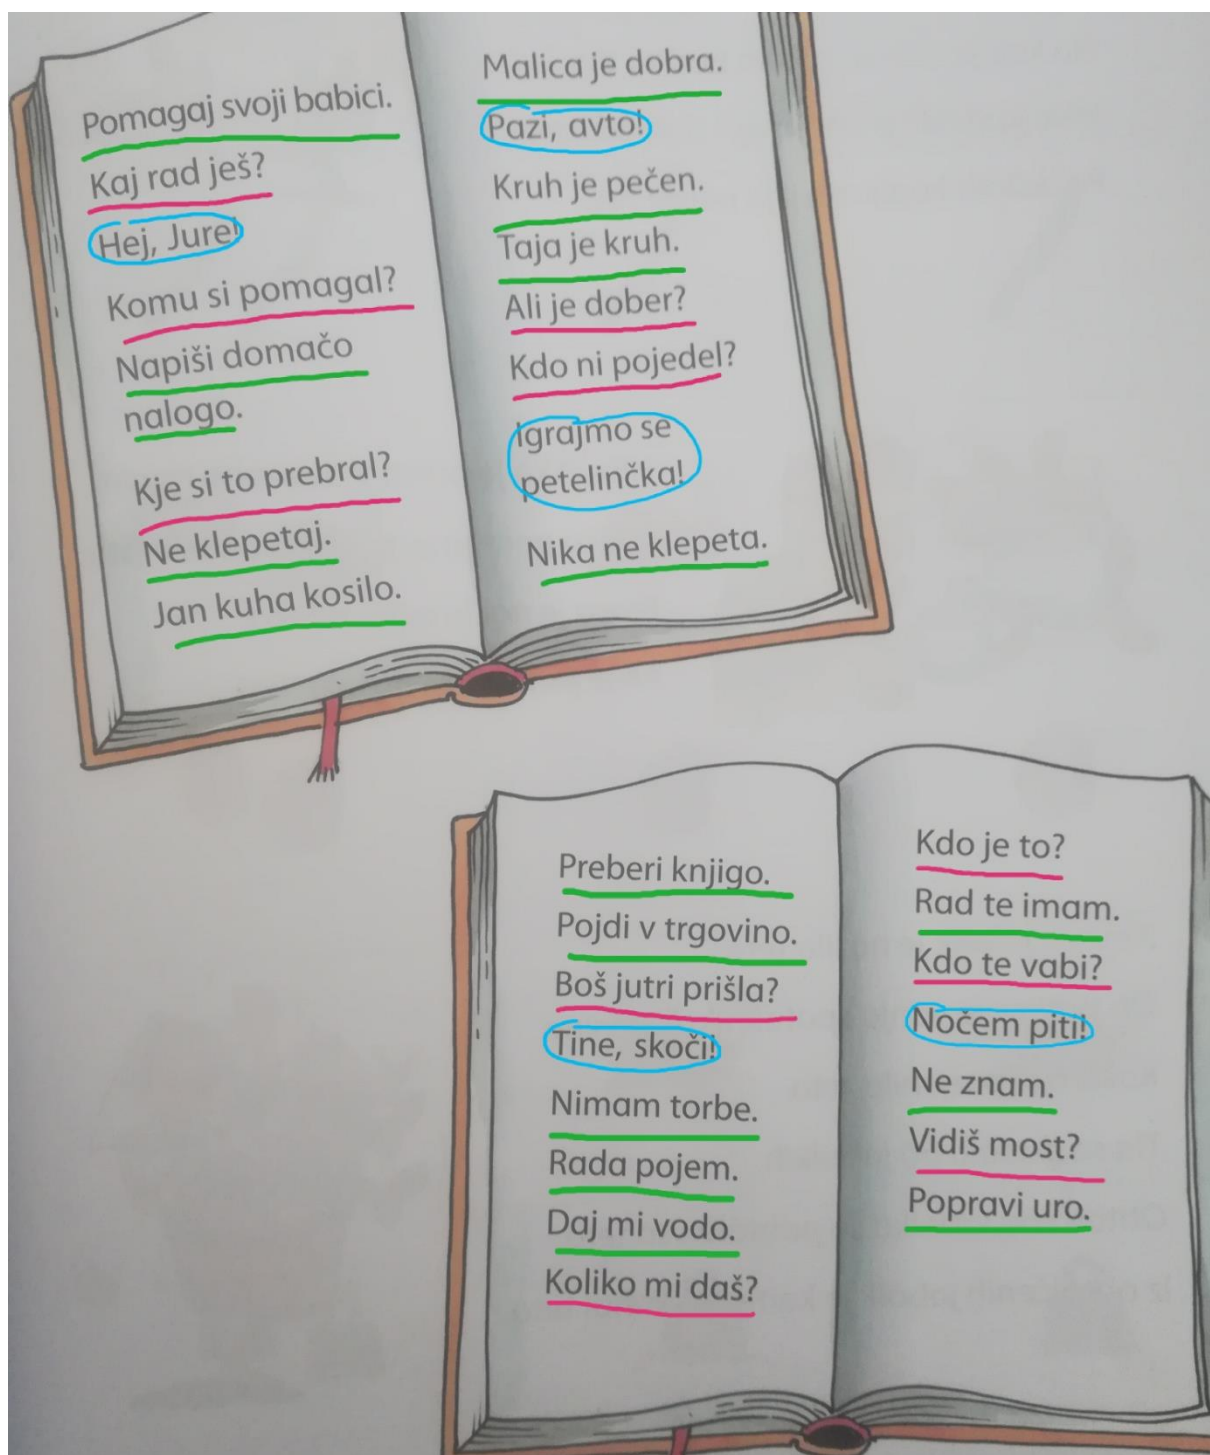 Pomagaj svoji babici.
Kaj rad ješ?
Hej, Jure!
Komu si pomagal?
Napiši domačo
nalogo.
Kje si to prebral?
Ne klepetaj.
Jan kuha kosilo.
Malica je dobra.
Pazi, avto!
Kruh je pečen.
Taja je kruh.
Ali je dober?
Kdo ni pojedel?
Igrajmo se
petelinčka!
Nika ne klepeta.
Preberi knjigo.
Pojdi v trgovino.
Boš jutri prišla?
Tine, skoči!
Nimam torbe.
Rada pojem.
Daj mi vodo.
Koliko mi daš?
Kdo je to?
Rad te imam.
Kdo te vabi?
Nočem piti!
Ne znam.
Vidiš most?
Popravi uro.